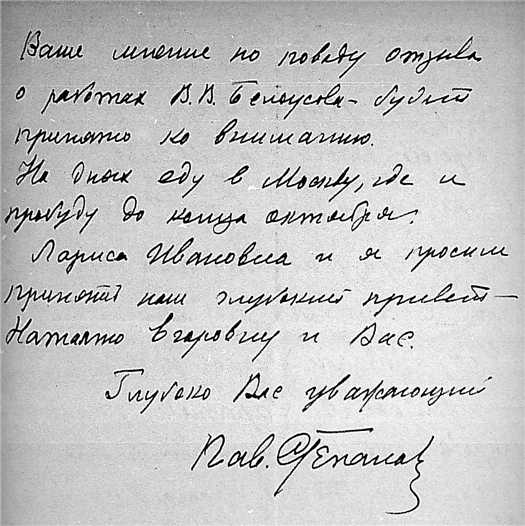 Ваше мнение по поводу отзыва
о работах В.В. Белоусова - будет
принято ко вниманию.
На днях еду в Москву, где и
пробуду до конца октября.
Лариса Ивановна и я просим
принять наш глубокий привет -
Наталию Егоровну и Вас.
Глубоко Вас уважающий
Пав. Степанов